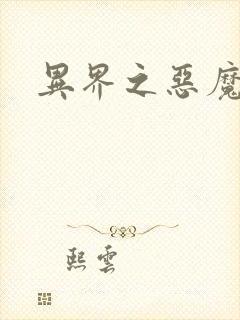 異界之惡魔
熙雲